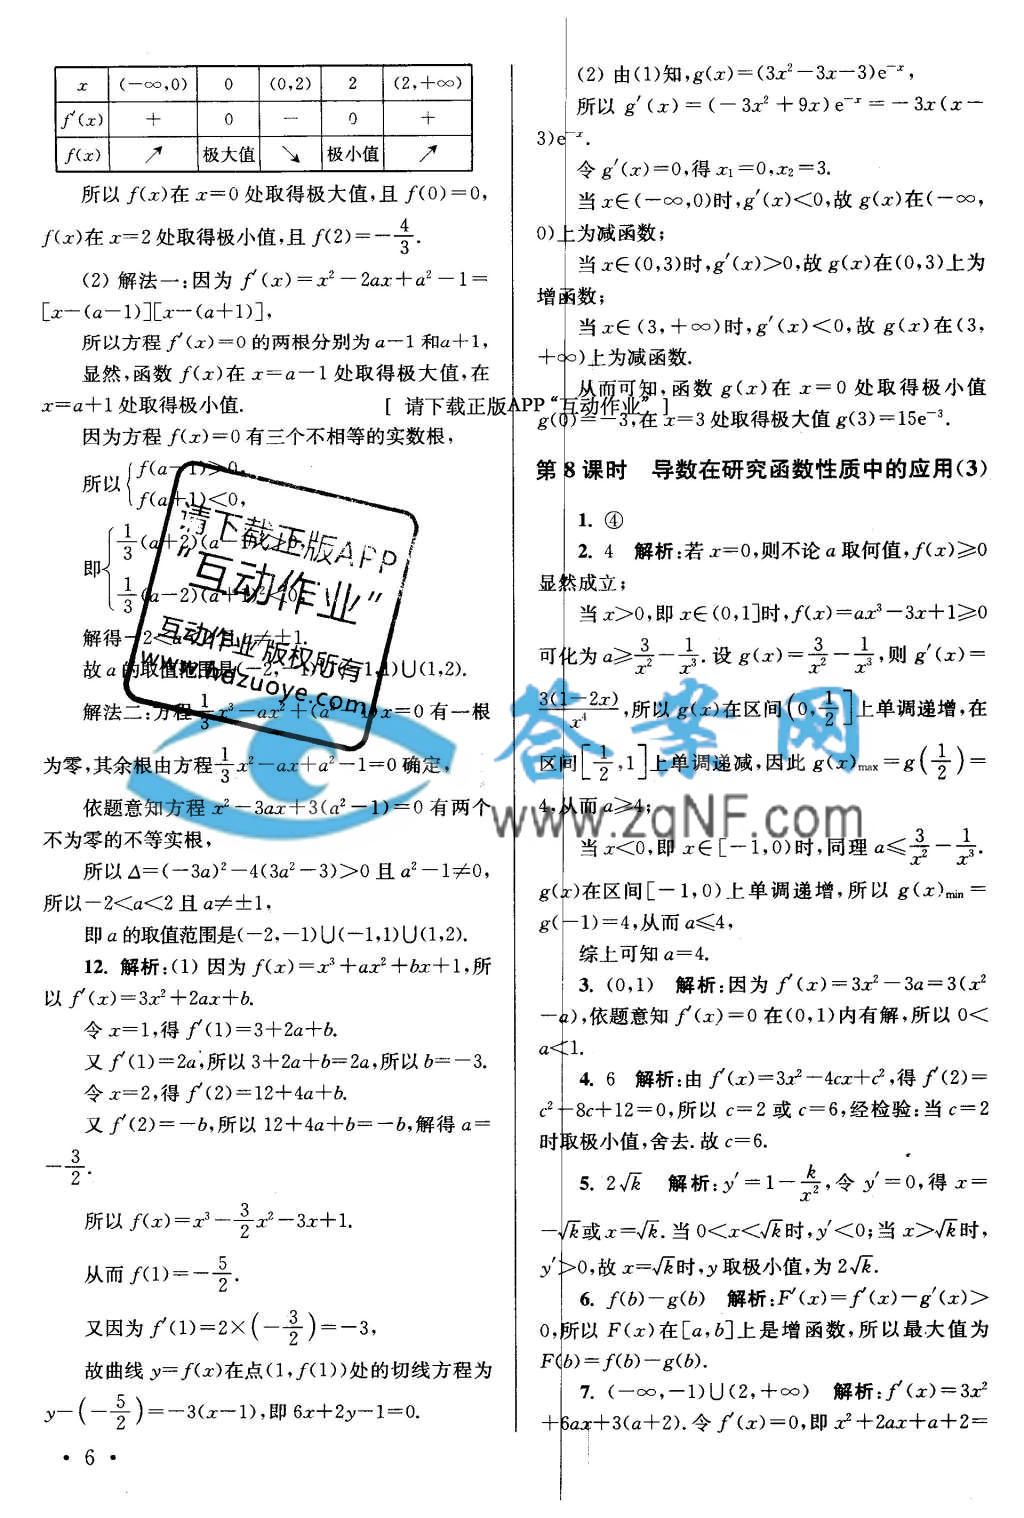 x (－∞,0) 0 (0,2) 2 (2,＋∞)
f′(x) ＋ 0 － 0 ＋
f(x) ↗ 极大值 ↘ 极小值 ↗
所以 f(x)在 x＝0 处取得极大值,且 f(0)＝0,
f(x)在 x＝2 处取得极小值,且 f(2)＝－4/3.
(2) 解法一:因为 f′(x)＝x²－2ax＋a²－1＝
[x－(a－1)][x－(a＋1)],
所以方程 f′(x)＝0 的两根分别为 a－1 和a＋1,
显然,函数 f(x)在 x＝a－1 处取得极大值,在
x＝a＋1 处取得极小值.
因为方程 f(x)＝0 有三个不相等的实数根,
所以{f(a－1)>0,
f(a＋1)<0,
即{1/3(a＋2)(a－1)²>0,
1/3(a－2)(a＋1)²<0,
解得－2<a<2且a≠±1.
故 a 的取值范围是(－2,－1)∪(－1,1)∪(1,2).
解法二:方程1/3x³－ax²＋(a²－1)x＝0 有一根
为零,其余根由方程1/3x²－ax＋a²－1＝0 确定,
依题意知方程 x²－3ax＋3(a²－1)＝0 有两个
不为零的不等实根,
所以 Δ＝(－3a)²－4(3a²－3)>0 且 a²－1≠0,
所以－2<a<2 且 a≠±1,
即 a 的取值范围是(－2,－1)∪(－1,1)∪(1,2).
12. 解析:(1) 因为 f(x)＝x³＋ax²＋bx＋1,所
以 f′(x)＝3x²＋2ax＋b.
令 x＝1,得 f′(1)＝3＋2a＋b.
又 f′(1)＝2a,所以 3＋2a＋b＝2a,所以 b＝－3.
令 x＝2,得 f′(2)＝12＋4a＋b.
又 f′(2)＝－b,所以 12＋4a＋b＝－b,解得 a＝
－3/2.
所以 f(x)＝x³－3/2x²－3x＋1.
从而 f(1)＝－5/2.
又因为 f′(1)＝2×(－3/2)＝－3,
故曲线 y＝f(x)在点(1,f(1))处的切线方程为
y－(－5/2)＝－3(x－1),即 6x＋2y－1＝0.
· 6 ·
(2) 由(1)知,g(x)＝(3x²－3x－3)e⁻ˣ,
所以 g′(x)＝(－3x²＋9x)e⁻ˣ＝－3x(x－
3)e⁻ˣ.
令 g′(x)＝0,得 x₁＝0,x₂＝3.
当 x∈(－∞,0)时,g′(x)<0,故 g(x)在(－∞,
0)上为减函数;
当 x∈(0,3)时,g′(x)>0,故 g(x)在(0,3)上为
增函数;
当 x∈(3,＋∞)时,g′(x)<0,故 g(x)在(3,
＋∞)上为减函数.
从而可知,函数 g(x)在 x＝0 处取得极小值
[ 请下载正版APP“互动作业” ]
g(0)＝－3,在 x＝3处取得极大值 g(3)＝15e⁻³.
第 8 课时 导数在研究函数性质中的应用(3)
1. ④
2. 4 解析:若 x＝0,则不论 a 取何值,f(x)≥0
显然成立;
当 x>0,即 x∈(0,1]时,f(x)＝ax³－3x＋1≥0
可化为 a≥3/x²－1/x³.设 g(x)＝3/x²－1/x³,则 g′(x)＝
3(1－2x)/x⁴,所以 g(x)在区间(0,1/2]上单调递增,在
区间[1/2,1]上单调递减,因此 g(x)max＝g(1/2)＝
4,从而 a≥4;
当 x<0,即 x∈[－1,0)时,同理 a≤3/x²－1/x³.
g(x)在区间[－1,0)上单调递增,所以 g(x)min＝
g(－1)＝4,从而 a≤4,
综上可知 a＝4.
3. (0,1) 解析:因为 f′(x)＝3x²－3a＝3(x²
－a),依题意知 f′(x)＝0 在(0,1)内有解,所以 0<
a<1.
4. 6 解析:由 f′(x)＝3x²－4cx＋c²,得 f′(2)＝
c²－8c＋12＝0,所以 c＝2 或 c＝6,经检验:当 c＝2
时取极小值,舍去.故 c＝6.
5. 2√k 解析:y′＝1－k/x²,令 y′＝0,得 x＝
－√k或 x＝√k.当 0<x<√k时,y′<0;当 x>√k时,
y′>0,故 x＝√k时,y 取极小值,为 2√k.
6. f(b)－g(b) 解析:F′(x)＝f′(x)－g′(x)>
0,所以 F(x)在[a,b]上是增函数,所以最大值为
F(b)＝f(b)－g(b).
7. (－∞,－1)∪(2,＋∞) 解析:f′(x)＝3x²
＋6ax＋3(a＋2).令 f′(x)＝0,即 x²＋2ax＋a＋2＝
请下载正版APP
“互动作业”
互动作业 版权所有
www.hdzuoye.com
答案网
www.zqNF.com